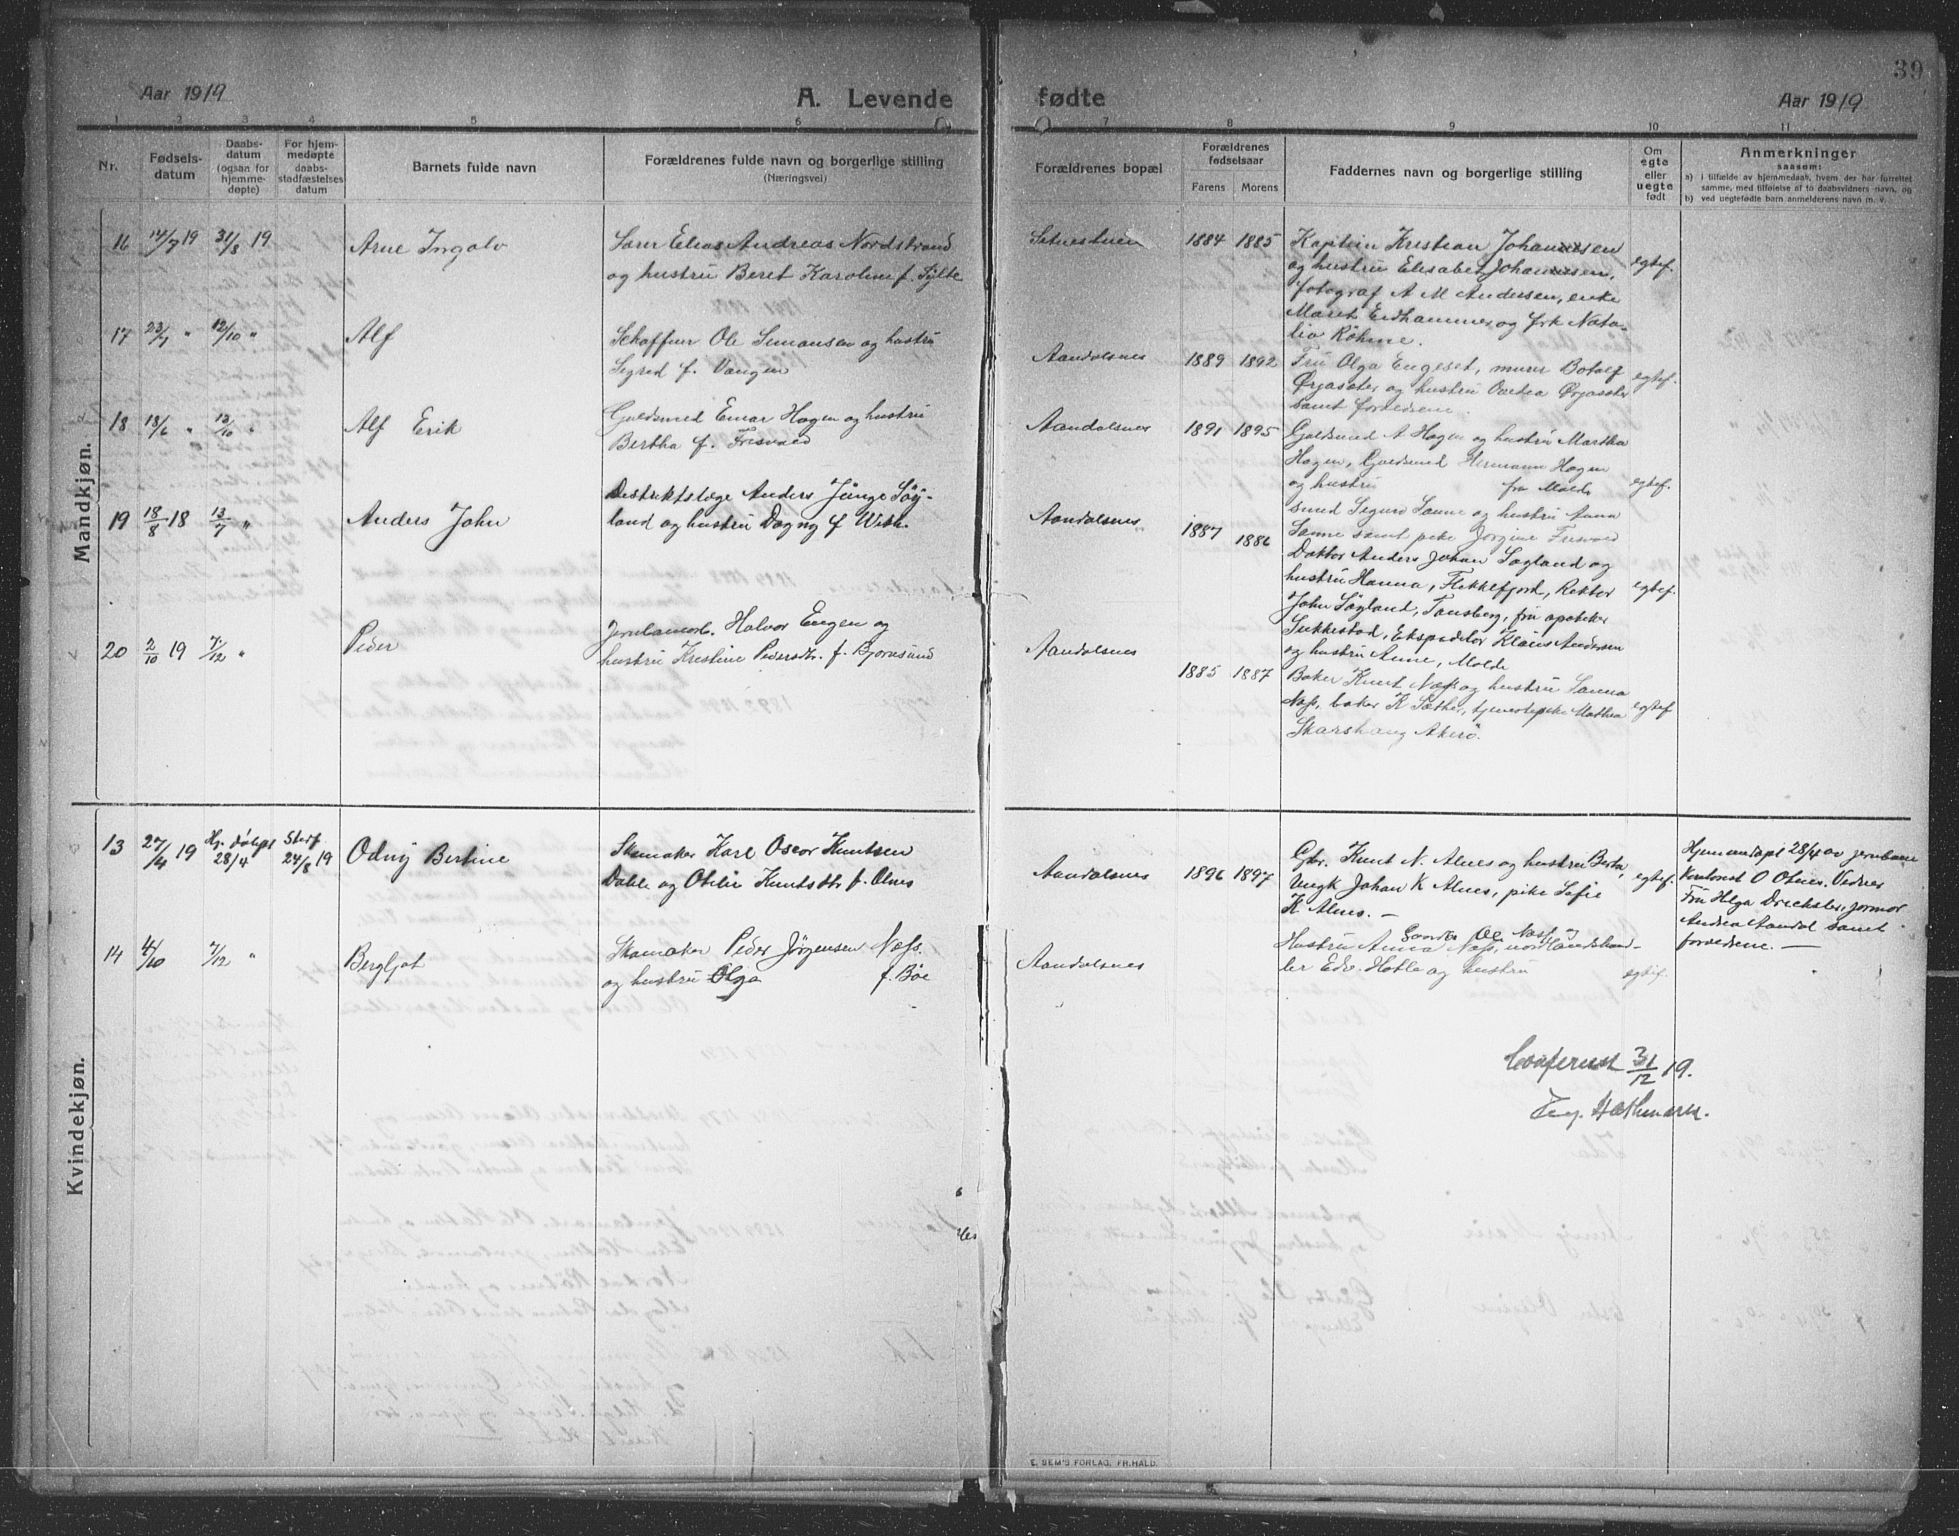 39
Aar 1919
A. Levende
fødte
Aar 1919
1 2 3 4 5 6 7 8 9 10 11
Nr.
Fødsels-
datum
Daabs-
datum
(ogsaa for
hjemme-
døpte)
For hjem-
medøpte
daabs-
stadfæstelses
datum
Barnets fulde navn
Forældrenes fulde navn og borgerlige stilling
(Næringsvei)
Forældrenes bopæl
Forældrenes
fødselsaar
Farens Morens
Faddernes navn og borgerlige stilling
Om
egte
eller
uegte
født
Anmerkninger
saasom:
a) i tilfælde av hjemmedaab, hvem der har forrettet
samme, med tilføielse af to daabsvidners navn, og
b) ved uegtefødte barn anmelderens navn m. v.
Mandkjøn.
16 14/7 19 31/8 19 Arne Ingolv
Elias Andreas Nordstrand
og hustru Beret Karoline f. Sylte
1884 1885
Kaptein Kristian Johannesen
og hustru Elisabet Johannesen,
fotograf A M Andersen, enke
Marit og frk Nata-
lia Röhme.
egtef.
17 23/7 " 12/10 " Alf
Ole Simonsen og hustru
Sigrid f. Vangen
Aandalsnes 1889 1892
Fru Olga Engeset, murer Botolf
Ørjasæter og hustru Ovedia Ørjasæter
samt forældrene.
egtef.
18 18/6 " 13/10 " Alf Erik
Guldsmed Einar Hagen og hustru
Bertha f. Frisvold
Aandalsnes 1891 1895
Guldsmed A Hagen og hustru Martha
Hagen, Guldsmed Hermann Hagen
og hustru fra Molde
smed Sigurd Sanne og hustru Anna
Sanne samt pike Jørgine Frisvold
egtef.
19 18/8 18 13/7 " Anders John
Distriktslæge Anders Jünge Söy-
land og hustru Dagny f
Aandalsnes 1887 1886
Doktor Anders Johan Søgland og
hustru Hanna, Flekkefjord, Rektor
John Søgland, Tønsberg, fru apoteker
Ekspeditør Klaus Andersen
og hustru Anne, Molde
egtef.
20 2/10 19 7/12 " Peder
Jernbanearb. Halvor Engen og
hustru Kristine Pedersdtr. f. Bjørnsund
Aandalsnes 1885 1887
Baker Knut Næss og hustru Sanna
Næss, baker K Sæther, tjenestepike Mathea
Skarshaug Akerø.
egtef
Kvindekjøn.
13 27/4 19 Hj. döpt 28/4 Stadf 24/8 19 Odny Bertine
Skomaker Karl Oscar Knutsen
Dahle og Otelie Knutsdtr. f. Alnes
Aandalsnes 1896 1897
Gbr. Knut N. Alnes og hustru Berta,
Ungk Johan K Alnes, pike Sofie
K Alnes. —
egtef.
Hjemmedøpt 28/4 av jernbane
kontorist O Otnes. Vidner
Fru Helga Drechsler, jormor
Andrea Aandal samt
forældrene. —
14 4/10 7/12 " Bergljot
Skomaker Peder Jørgensen Næss.
og hustru Olga f. Böe
Aandalsnes
Gaardbr Ole Næss og
Hustru Anna Næss, Handsban-
ler Edv. Hotle og hustru
egtef.
Confereret 31/12 19.
E. SEM'S FORLAG, FR.HALD.